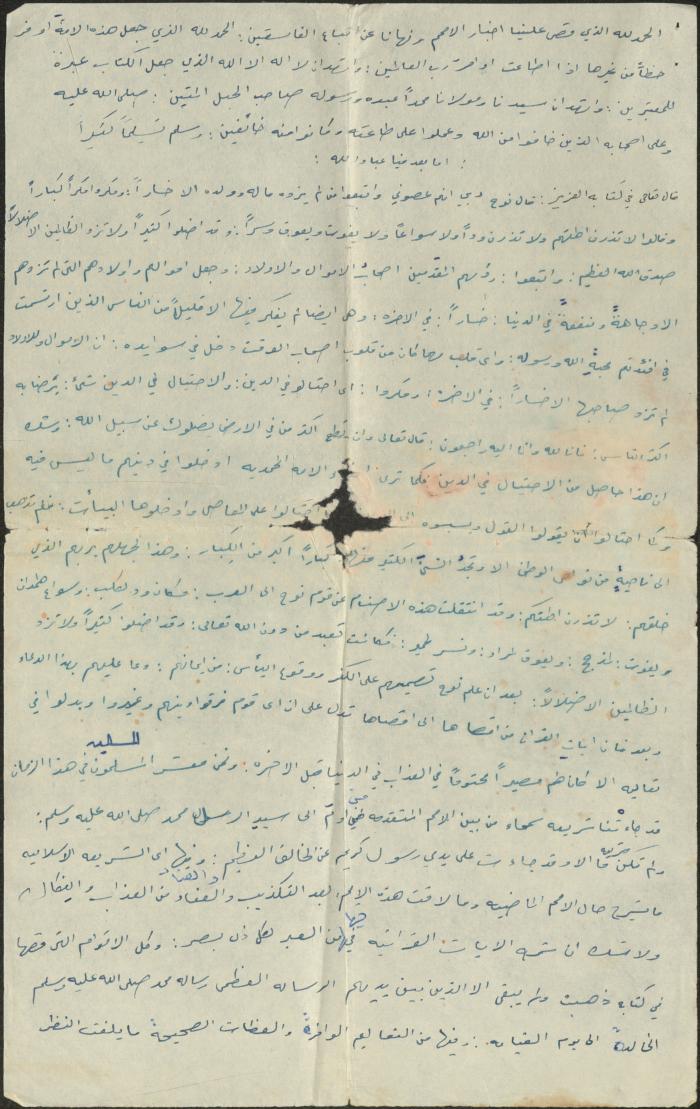 الحمد لله الذي قص علينا اخبار الامم ونهانا عن اتباع الفاسقين : الحمد لله الذي جعل هذه الامة اوفر
حظاً من غيرها اذا اطاعت اوامر رب العالمين : واشهد ان لا اله الا الله الذي جعل الكتاب عبرة
للمعتبرين : واشهد ان سيدنا ومولانا محمداً عبده ورسوله صاحب الحبل المتين : صلى الله عليه
وعلى اصحابه الذين خافوا من الله وعملوا على طاعته وكانوا منه خائفين : وسلم تسليماً كثيراً
: اما بعد فيا عباد الله :
قال تعالى في كتابه العزيز : قال نوح ربي انهم عصوني واتبعوا من لم يزده ماله وولده الا خساراً : ومكروا مكراً كباراً
وقالوا لا تذرن الهتكم ولا تذرن وداً ولا سواعاً ولا يغوث ويعوق ونسراً : وقد اضلوا كثيراً ولا تزد الظالمين الا ضلالاً
صدق الله العظيم : واتبعوا : رؤسهم المتقدمين اصحاب الاموال والاولاد : وجعل اموالهم واولادهم التي لم تزدهم
الا وجاهةً ومنفعةً في الدنيا : خساراً : في الاخره : وهي ايضا لم يفكر فيها الا قليلاً من الناس الذين ارتسمت
في افئدتهم محبة الله ورسوله : واي قلب مهما كان من قلوب اصحاب الوقت دخل في سوايده : ان الاموال والاولاد
لم تزد صاحبها الا خساراً : في الاخرة : ومكروا : اي احتالوا في الدين : والاحتيال في الدين شئ : يرضا به
اكثر الناس : فانا لله وانا اليه راجعون : قال تعالى وان تطع اكثر من في الارض يضلوك عن سبيل الله : ونشهد
ان هذا حاصل من الاحتيال في الدين فكما ترى الامه المحمديه ادخلوا في دينهم ما ليس فيه
وكما احتالوا ان يقولوا القول وينسبوه الى احتالوا على المعاصي وادخلوها البيئات : فلم تذهب
الى ناحيةٍ من نواحي الوطن الا وتجدُ الشئ الكثير منها : كباراً اكبر من الكبار : وهذا لجهلهم بربهم الذي
خلقهم : لا تذرن الهتكم : وقد انتقلت هذه الاصنام عن قوم نوح الى العرب : فكان ود لكلب : وسواع لهمدان
ويغوث : لمذحج : ويعوق لمراد : ونسر لحمير : فكانت تعبد من دون الله تعالى : وقد اضلوا كثيراً ولا تزد
الظالمين الا ضلالاً : بعد ان علم نوح تصميمهم على الكفر ووقوع اليأس : من ايمانهم : دعا عليهم بهذا الدعاء
وبعد فان ايات القرآن من اقصاها الى اقصاها تدل على ان اي قوم فرقوا دينهم وغيروا وبدلوا في
تعاليه الا كان لهم مصيراً محتوماً في العذاب في الدنيا قبل الاخره : ونحن معشر المسلمون للمسلمين في هذا الزمان
قد جاءتنا شريعه سمحاء من بين الامم المتقدمه من ادم الى سيد الرسل محمد صلى الله عليه وسلم :
ولم تكن الا وقد جاءت على يدي رسول كريم عن الخالق العظيم : وفيها اي الشريعه الاسلاميه
ما يشرح حال الامم الماضيه وما لاقت هذه الامم بعد التكذيب والعناد من العذاب والنكال
ولا شك ان شرح الايات القرانية فيها من العبر لكل ذي بصر : وكل الاقوام التي قصها
في كتابه ذهبت ولم يبقى الا الذين بين يديهم الرساله العظمى رساله محمد صلى الله عليه وسلم
الخالدة الى يوم القيامه : وفيها من التعاليم الوافرة والعظات الصحيحة ما يلفت النظر